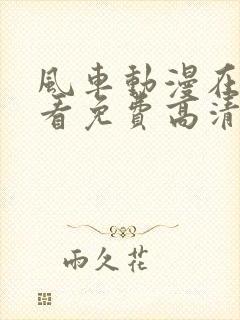 風車動漫在
看免費高清
雨久花